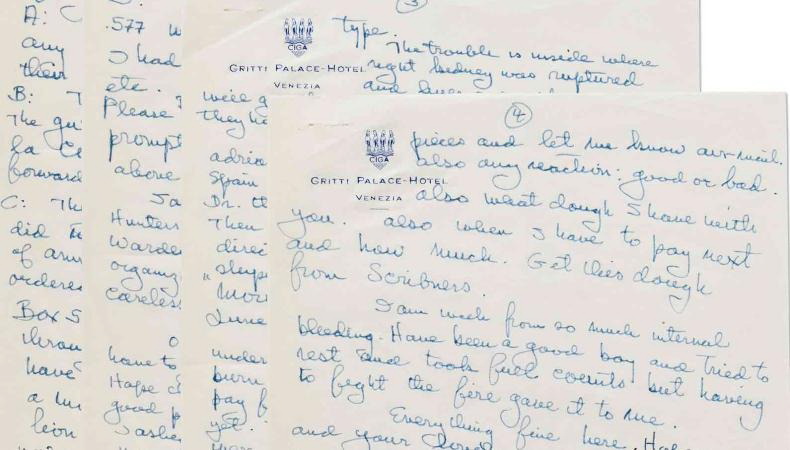 A: C
any
their
B: T
The gu
la Ce
forward
C: Th
did
of arm
ordered
Box S
thrown
have
a lm
leon
.577 w
I had
etc.
Please
prompt
above
Sa
Hunters
Warde
organiz
careless
O
have to
Hope
good p
Sashe
GRITTI PALACE-HOTEL
VENEZIA
will g
they ha
adria
Spain
Dr.
Then
direc
"sleep
More
June
under
burn
pay f
yet.
3
CIGA
type.
The trouble is inside where
right kidney was ruptured
and liver
4
CIGA
GRITTI PALACE-HOTEL
VENEZIA
pieces and let me know air-mail.
also any reaction: good or bad.
also what dough I have with
you. also when I have to pay next
and how much. Get this dough
from Scribners.
I am weak from so much internal
bleeding. Have been a good boy and tried to
rest and took fuel counts but having
to fight the fire gave it to me.
Everything fine here.
and your